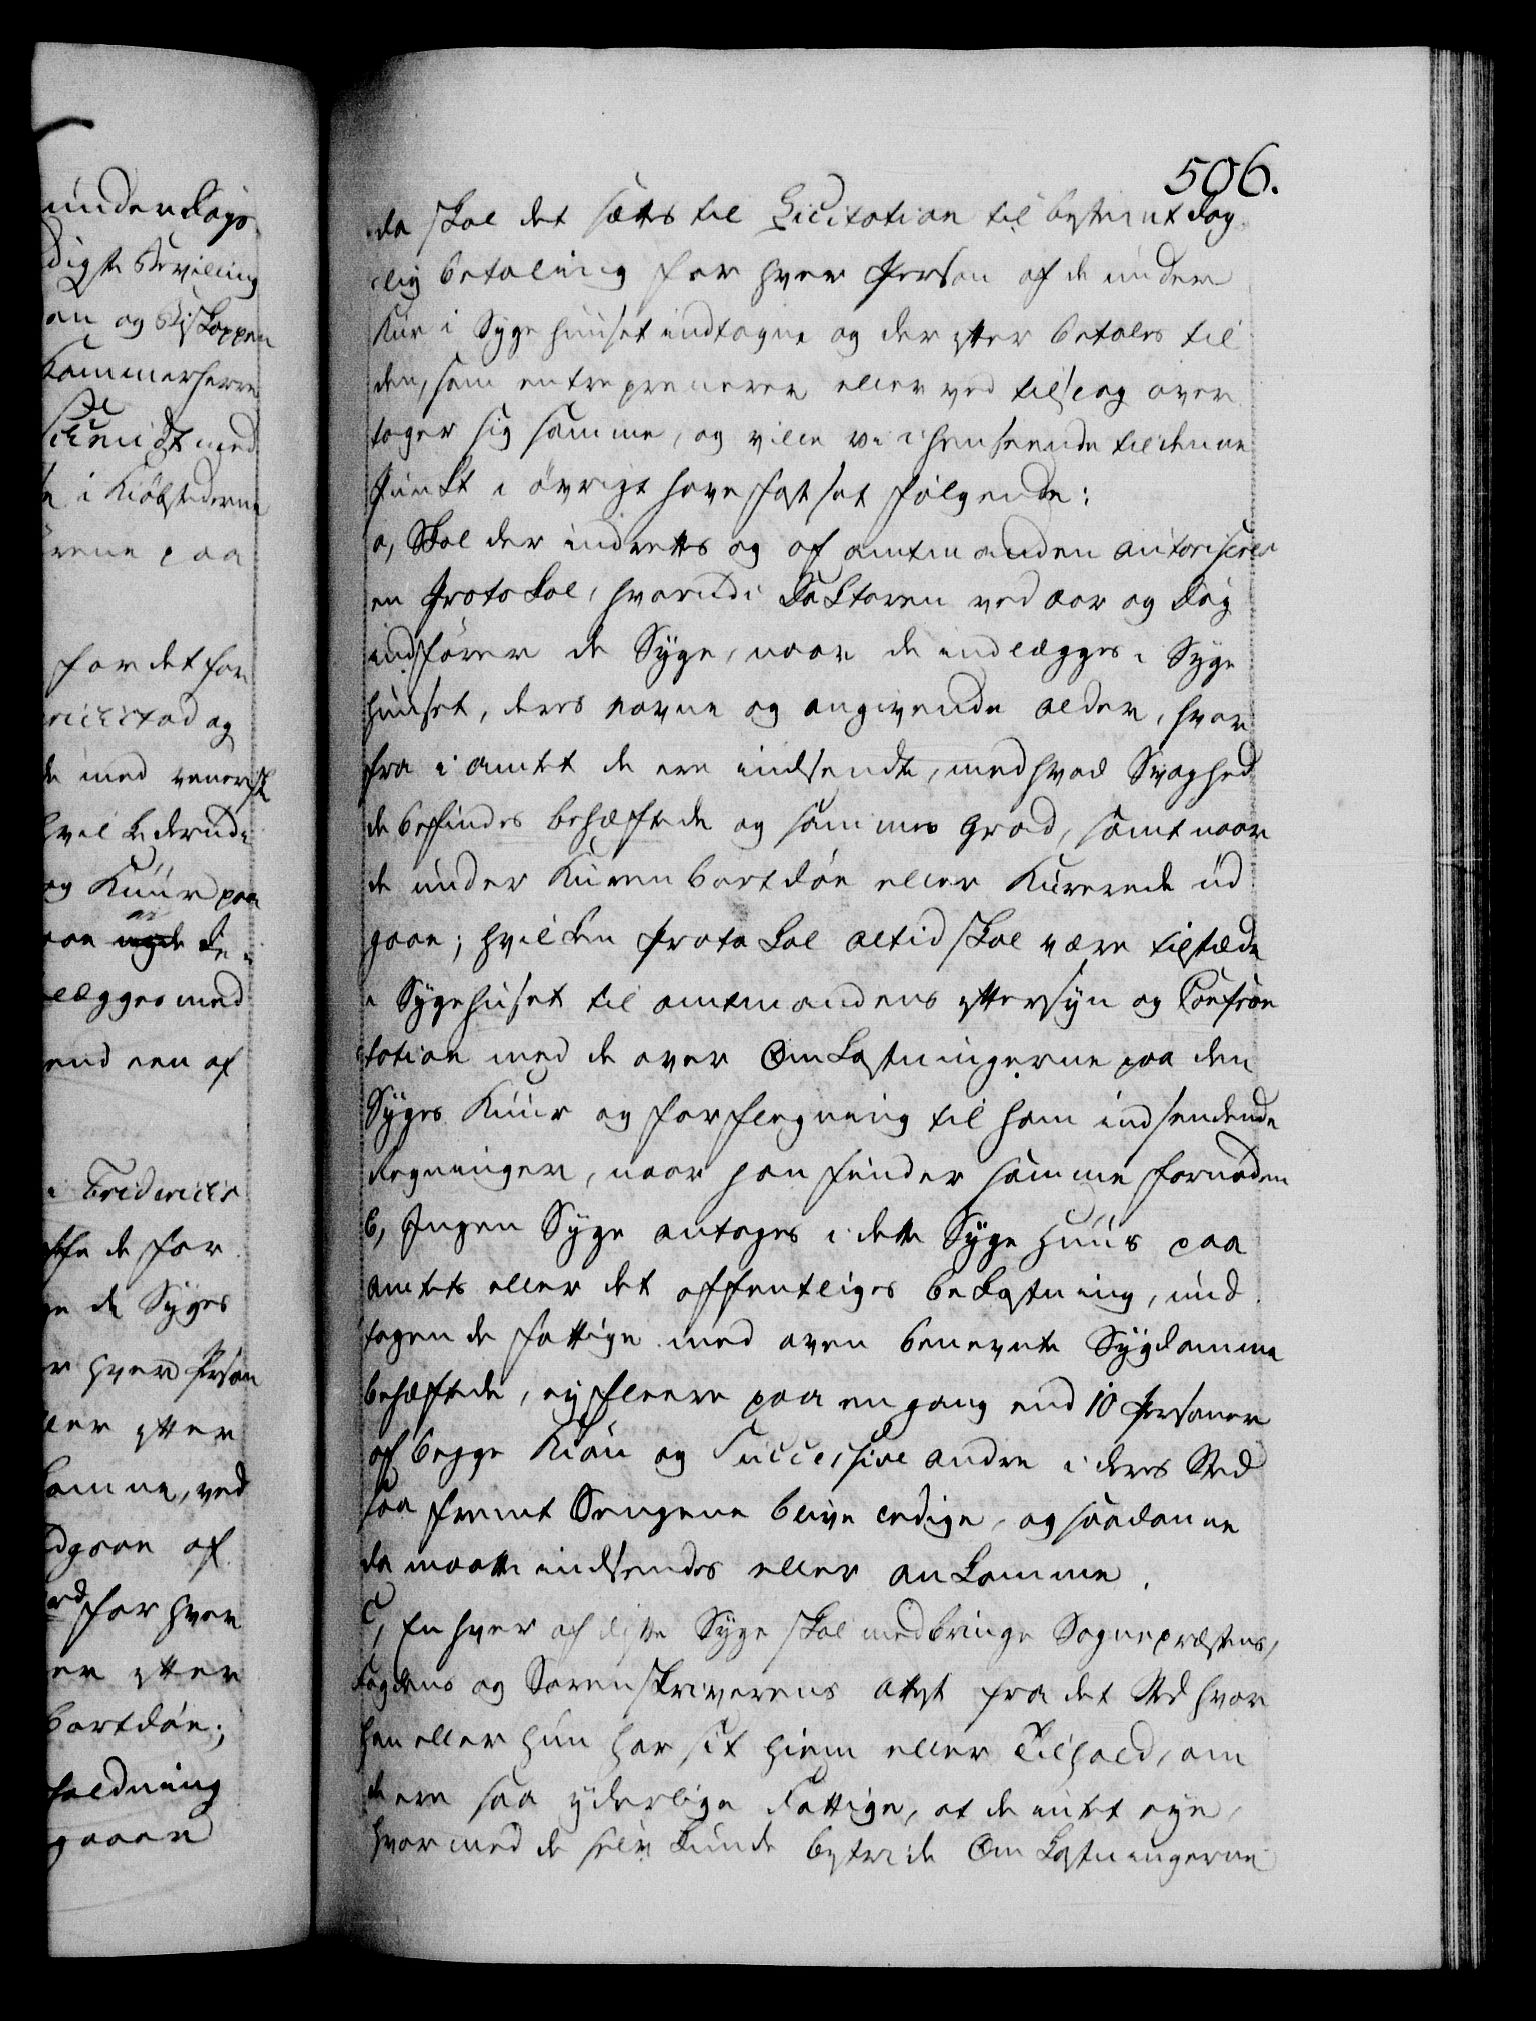 under dags
digste Bevilling
en og Biskoppen
Kammerherre
Schmidt med
te i Kiöbstederne
erene paa
for det for
ricichstad og
de med venerisk
hvil Lederud
og Kuur paa
paa
lægges med
end een af
i Friderichs
de for
ge de Syges
r hver Person
ler efter
komme, ved
dgaae af
for hver
er efter
bortdöe;
holdning
gaaer
506.
da skal det sættes til Licitation til bestemt dag
lig betaling for hver Person af de under
Kur i Sygehuuset indtagne og derefter betales til
den, som entreprenerer eller ved tilslag over
tager sig samme, og ville vi i henseende til denne
Punkt i övrigt have fastsat fölgende:
a, Skal der indrettes og af amtmanden autoriseres
en Protokol, hvorudi Doktoren ved aar og dag
indförer de Syge, naar de indlægges i Syge
huuset, deres navne og angivende alder, hvor
fra i amtet de ere indsendte, med hvad Svaghed
de befindes behæftede og sammes grad, samt naar
de under Kuren bortdöe eller Kurerede ud
gaae; hvilken Protokol altid skal være tilstæde
i Sygehuset til amtmandens eftersyn og Confron
tation med de over Omkostningerne paa den
Syges Kuur og forflegning til ham indsendende
Regninger, naar han finder samme fornöden
b, Ingen Syge antages i dette Syge Huus paa
amtets eller det offentliges bekostning, und
tagen de fattige med oven benevnte Sygdomme
behæftede, ey fleere paa en gang end 10 Personer
af begge Kiön og Successive andre i deres Sted
saa fremt Sengene blive ledige, og saadanne
da maatte indsendes eller ankomme.
c, En hver af disse Syge skal medbringe Sognepræstens,
Fogdens og Sorenskriverens Attest fra det Sted hvor
han eller hun har sit Hiem eller Tilhold, om
de ere saa yderlige Fattige, at de intet eye,
hvormed de selv kunde bestride Omkostningerne